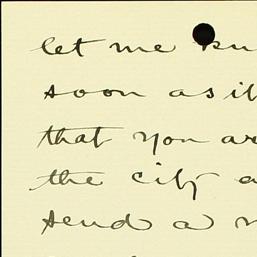 let me
soon as it
that you ar
the city a
send a